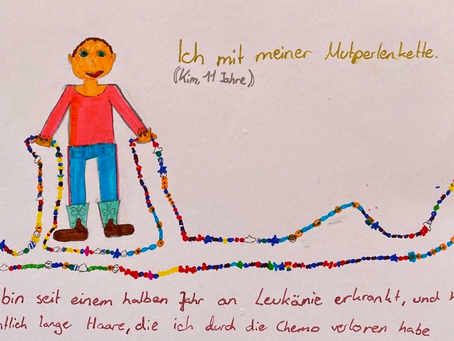 Ich mit meiner Mutperlenkette.
(Kim, 11 Jahre,)
bin seit einem halben Jahr an Leukänie erkrankt, und
lange Haare, die ich durch die Chemo verloren habe